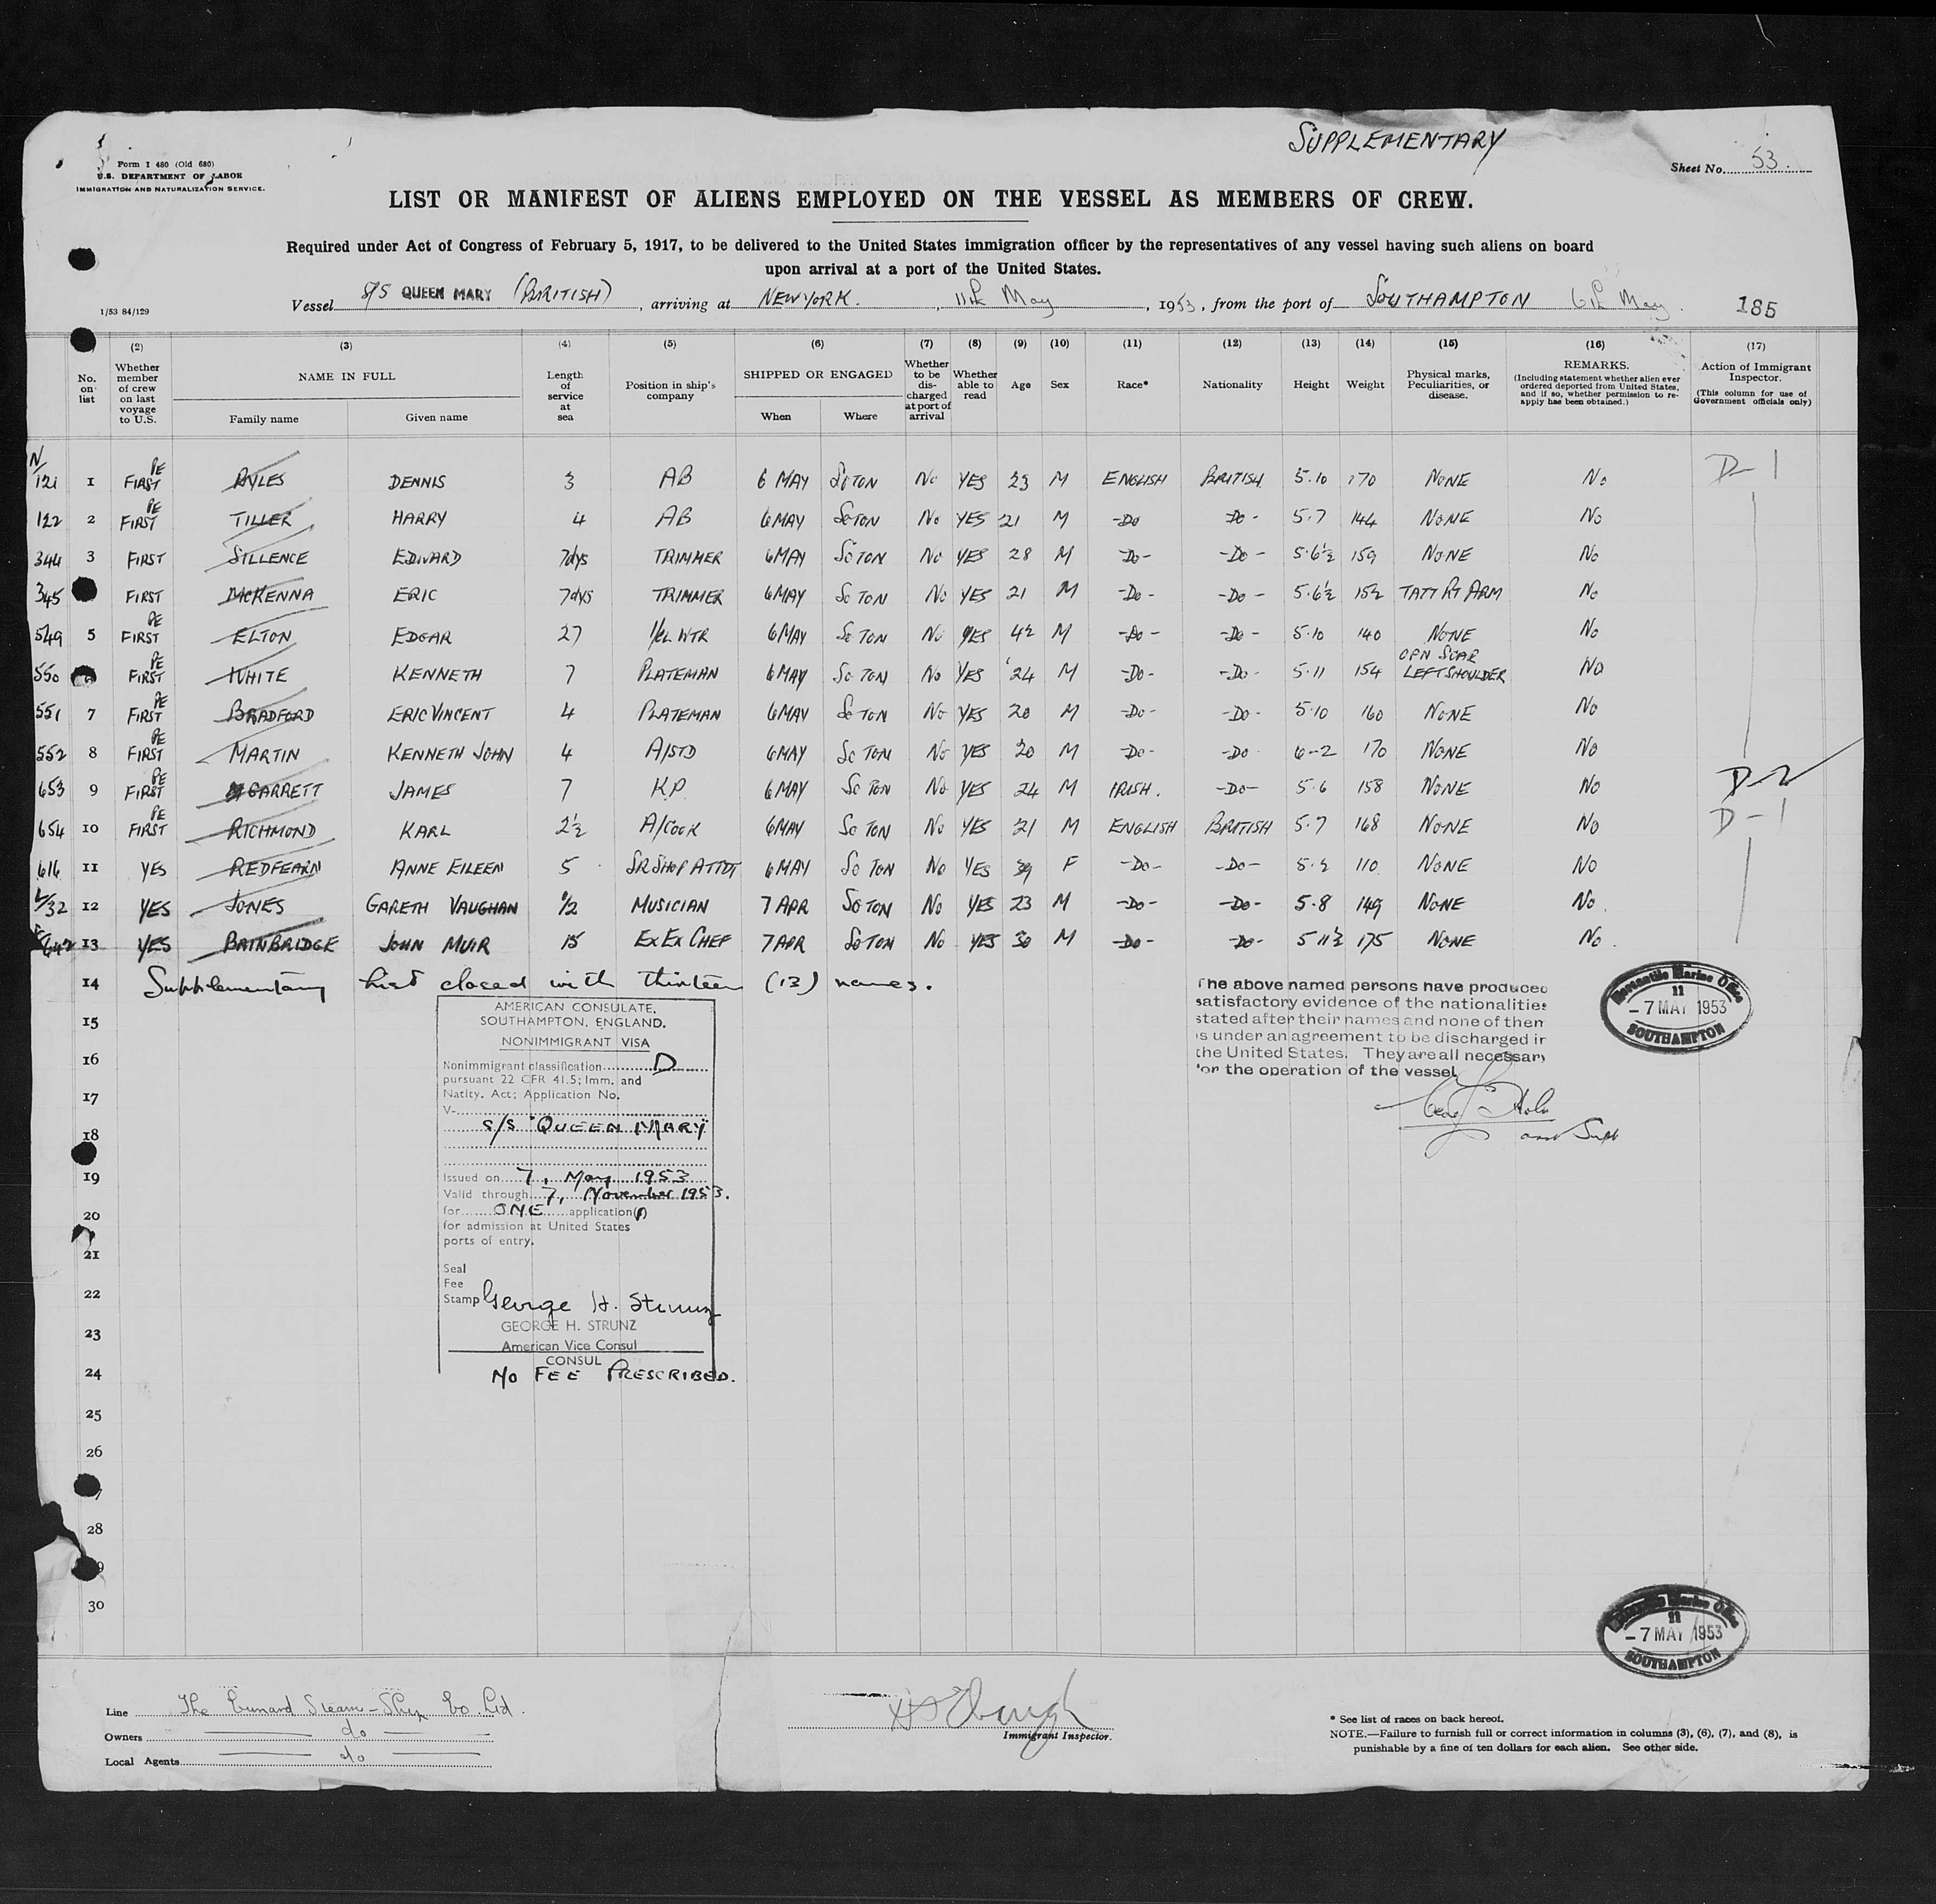 SUPPLEMENTARY
Form I 480 (Old 680)
U.S. DEPARTMENT OF LABOR
IMMIGRATION AND NATURALIZATION SERVICE.
Sheet No. 53.
LIST OR MANIFEST OF ALIENS EMPLOYED ON THE VESSEL AS MEMBERS OF CREW.
Required under Act of Congress of February 5, 1917, to be delivered to the United States immigration officer by the representatives of any vessel having such aliens on board
upon arrival at a port of the United States.
Vessel S/S QUEEN MARY (BRITISH), arriving at NEW YORK., 11th May, 1953, from the port of SOUTHAMPTON 6th May.
1/53 84/129
185
(2) (3) (4) (5) (6) (7) (8) (9) (10) (11) (12) (13) (14) (15) (16) (17)
No. on list
Whether member of crew on last voyage to U.S.
NAME IN FULL
Family name
Given name
Length of service at sea
Position in ship's company
SHIPPED OR ENGAGED
When
Where
Whether to be discharged at port of arrival
Whether able to read
Age
Sex
Race*
Nationality
Height
Weight
Physical marks, Peculiarities, or disease.
REMARKS.
(Including statement whether alien ever ordered deported from United States, and if so, whether permission to re-apply has been obtained.)
Action of Immigrant Inspector.
(This column for use of Government officials only)
N/
121 1 PE FIRST AYLES DENNIS 3 AB 6 MAY SOTON No YES 23 M ENGLISH BRITISH 5.10 170 NONE No D-1
122 2 PE FIRST TILLER HARRY 4 AB 6 MAY SOTON No YES 21 M -Do -Do- 5.7 144 NONE No
344 3 FIRST SILLENCE EDWARD 7dys TRIMMER 6 MAY SOTON No YES 28 M -Do- -Do- 5.6½ 159 NONE No
345 FIRST McKENNA ERIC 7dys TRIMMER 6 MAY SOTON No YES 21 M -Do- -Do- 5.6½ 152 TATT RT ARM No
549 5 PE FIRST ELTON EDGAR 27 WTR 6 MAY SOTON No YES 42 M -Do- -Do- 5.10 140 NONE No
550 PE FIRST WHITE KENNETH 7 PLATEMAN 6 MAY SOTON No YES 24 M -Do- -Do- 5.11 154 OPN SCAR LEFT SHOULDER No
551 7 PE FIRST BRADFORD ERIC VINCENT 4 PLATEMAN 6 MAY SOTON No YES 20 M -Do- -Do- 5.10 160 NONE No
552 8 PE FIRST MARTIN KENNETH JOHN 4 A/STD 6 MAY SOTON No YES 20 M -Do- -Do 6-2 170 NONE No
653 9 PE FIRST GARRETT JAMES 7 K.P. 6 MAY SOTON No YES 24 M IRISH. -Do- 5.6 158 NONE No D-2
654 10 PE FIRST RICHMOND KARL 2½ A/COOK 6 MAY SOTON No YES 21 M ENGLISH BRITISH 5.7 168 NONE No D-1
616 11 YES REDFEARN ANNE EILEEN 5 SR SHOP ATTDT 6 MAY SOTON No YES 39 F -Do- -Do- 5.2 110 NONE No
32 12 YES JONES GARETH VAUGHAN ½ MUSICIAN 7 APR SOTON No YES 23 M -Do- -Do- 5.8 149 NONE No.
642 13 YES BAINBRIDGE JOHN MUIR 15 EX EX CHEF 7 APR SOTON No YES 30 M -Do- -Do- 5 11½ 175 NONE No.
14 Supplementary list closed with thirteen (13) names.
15
16
17
18
19
20
21
22
23
24
25
26
28
30
AMERICAN CONSULATE,
SOUTHAMPTON, ENGLAND.
NONIMMIGRANT VISA
Nonimmigrant classification D
pursuant 22 CFR 41.5; Imm. and
Natity. Act; Application No.
V-
S/S QUEEN MARY
Issued on 7, May 1953
Valid through 7, November 1953.
for ONE application(s)
for admission at United States
ports of entry.
Seal
Fee
Stamp George H. Strunz
GEORGE H. STRUNZ
American Vice Consul
CONSUL
NO FEE PRESCRIBED.
The above named persons have produced
satisfactory evidence of the nationalities
stated after their names and none of them
is under an agreement to be discharged in
the United States. They are all necessary
for the operation of the vessel
Mercantile Marine Office
11
- 7 MAY 1953
SOUTHAMPTON
Mercantile Marine Office
11
- 7 MAY 1953
SOUTHAMPTON
Line The Cunard Steam-Ship Co. Ltd.
Owners do
Local Agents do
Immigrant Inspector.
* See list of races on back hereof.
NOTE.—Failure to furnish full or correct information in columns (3), (6), (7), and (8), is
punishable by a fine of ten dollars for each alien. See other side.